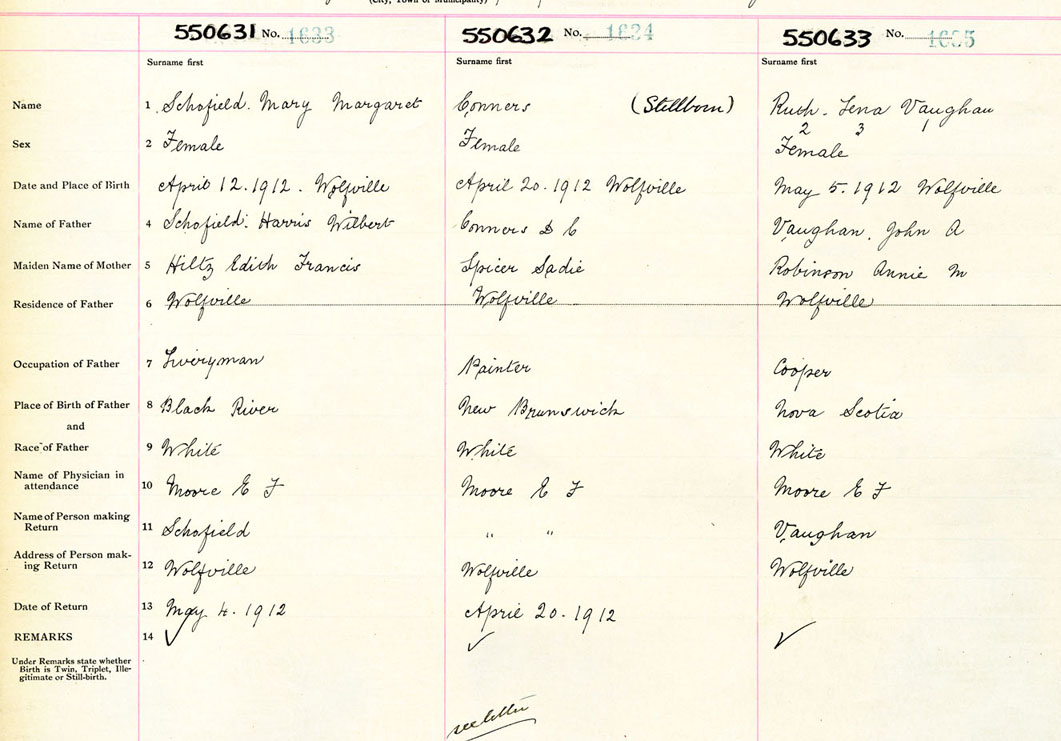 (City, Town or Municipality)
550631 No. 1633 550632 No. 1634 550633 No. 1635
Surname first Surname first Surname first
Name 1 Schofield. Mary Margaret Conners (Stillborn) Ruth. Lena Vaughan
2 3 1
Sex 2 Female Female Female
Date and Place of Birth April 12. 1912. Wolfville April 20. 1912 Wolfville May 5. 1912 Wolfville
Name of Father 4 Schofield. Harris Wilbert Conners D C Vaughan. John A
Maiden Name of Mother 5 Hiltz Edith Francis Spicer Sadie Robinson Annie M
Residence of Father 6 Wolfville Wolfville Wolfville
Occupation of Father 7 Liveryman Painter Cooper
Place of Birth of Father 8 Black River New Brunswick Nova Scotia
and
Race of Father 9 White White White
Name of Physician in
attendance 10 Moore E F Moore E F Moore E F
Name of Person making
Return 11 Schofield " " Vaughan
Address of Person mak-
ing Return 12 Wolfville Wolfville Wolfville
Date of Return 13 May 4. 1912 April 20. 1912
REMARKS 14 ✓ ✓ ✓
Under Remarks state whether
Birth is Twin, Triplet, Ille-
gitimate or Still-birth.
see letter